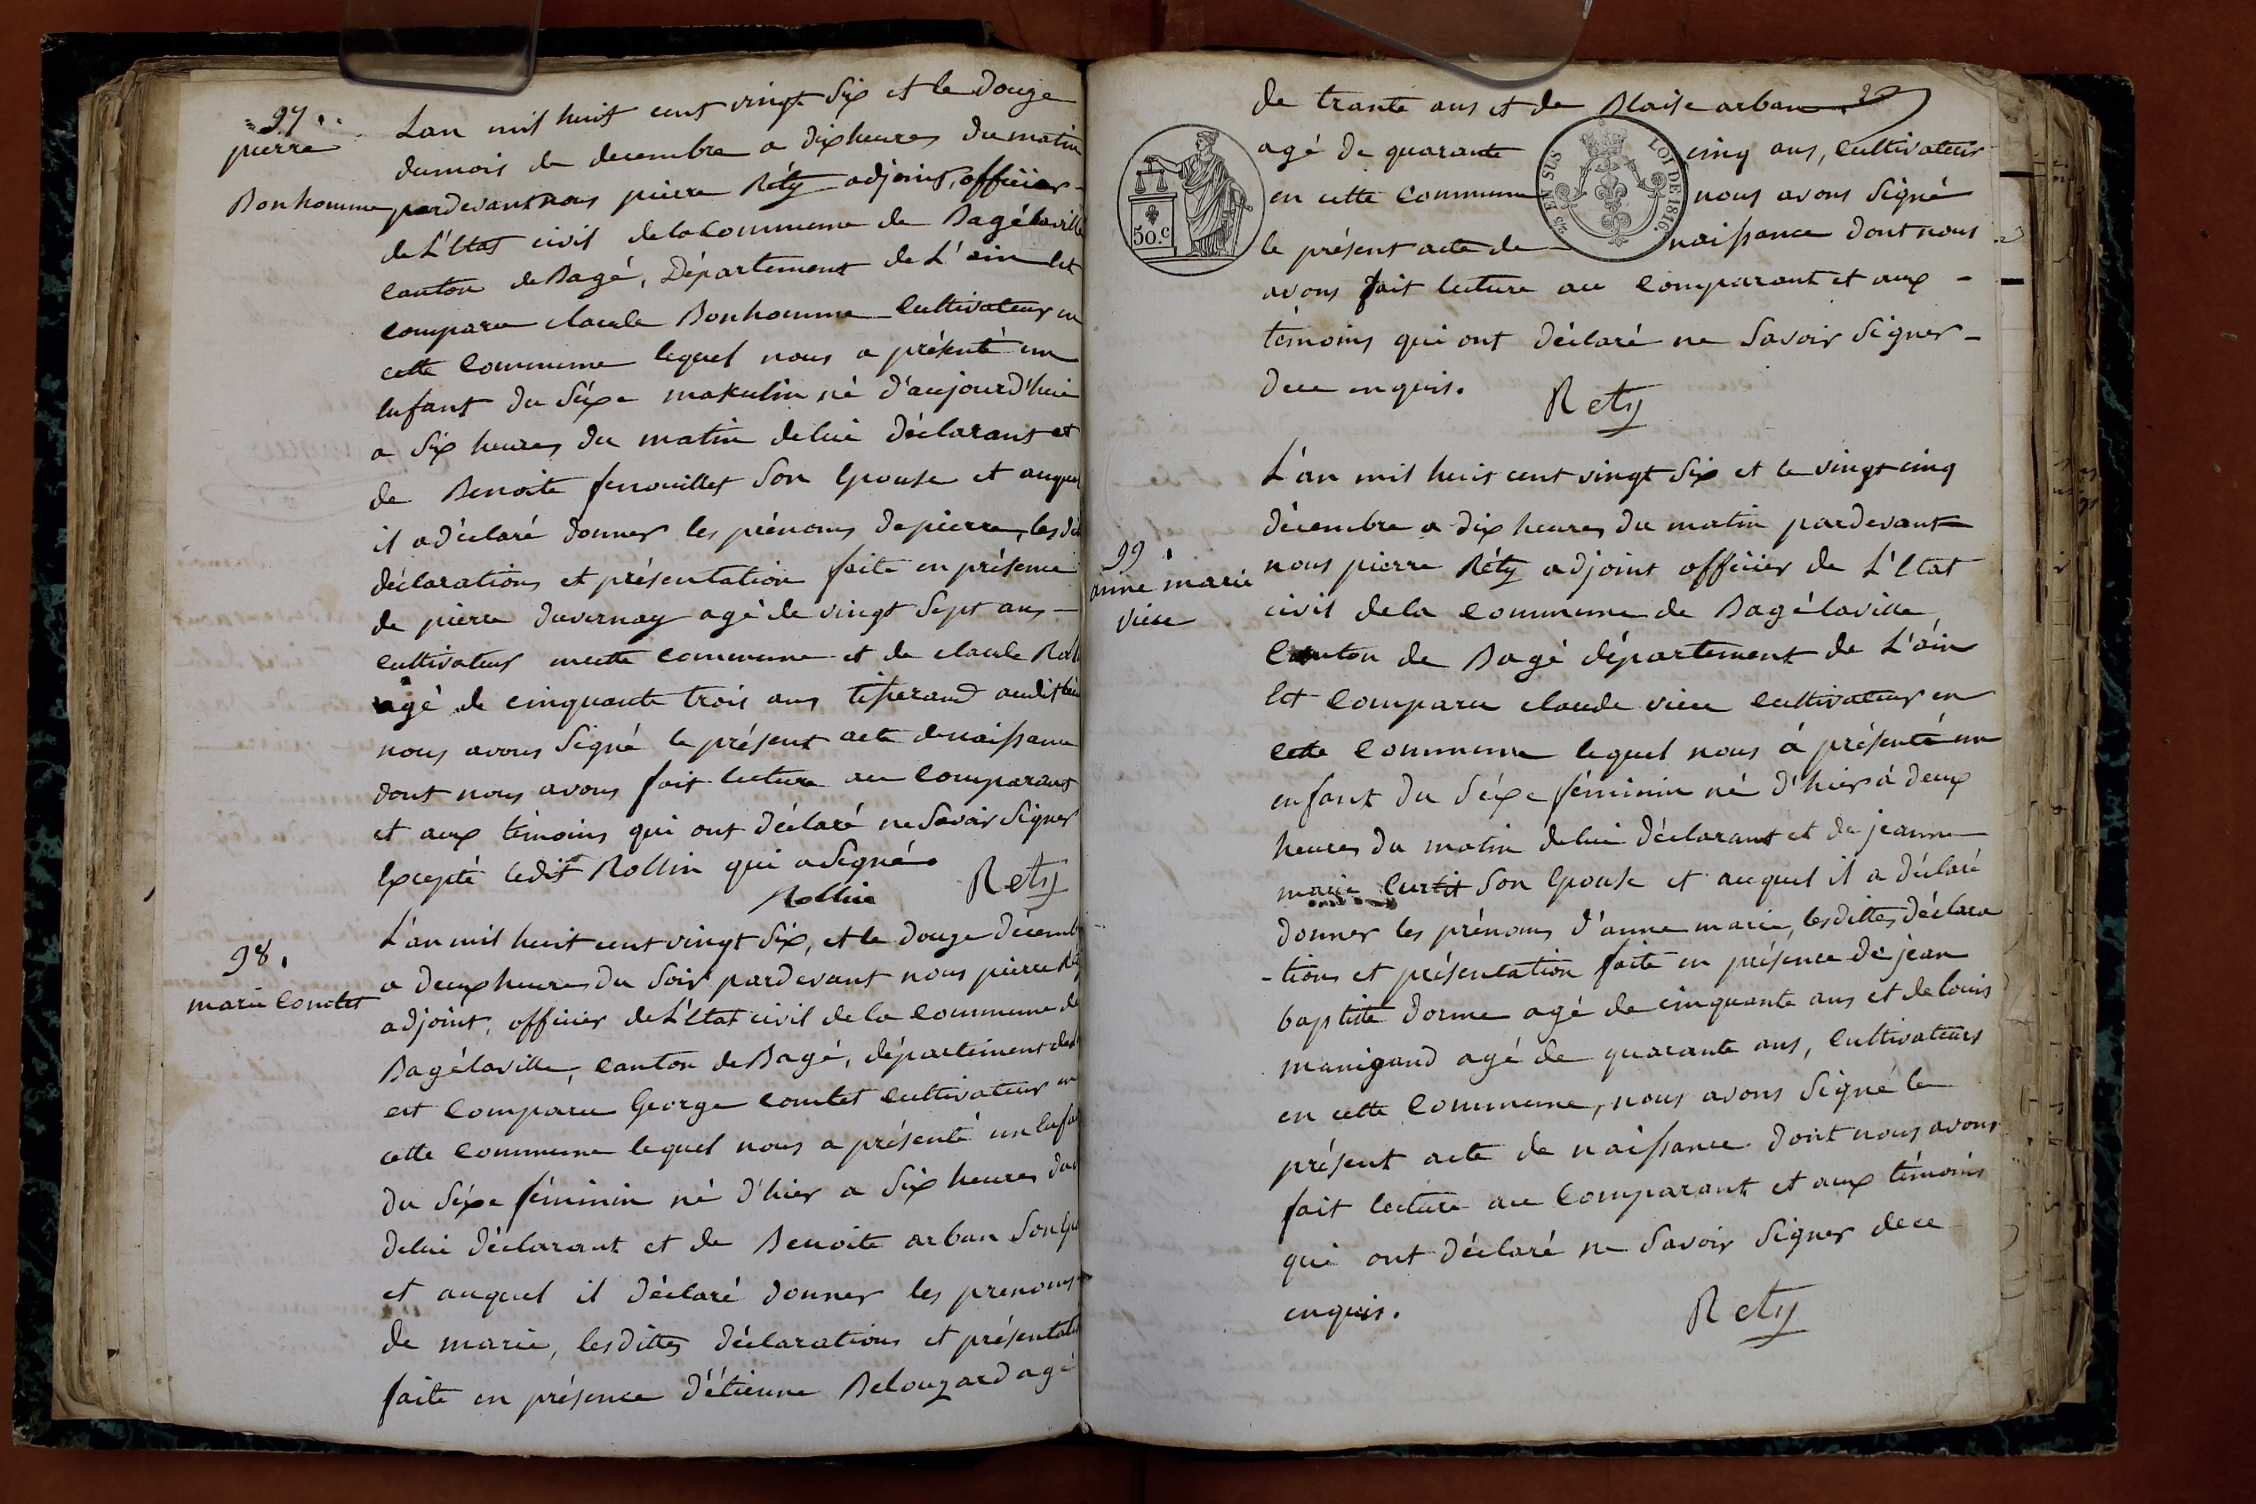 97
pierre
Bonhomme
Lan mil huit cent vingt Six et le douze
dumois de decembre a dix heures du matin
pardevant nous pierre Réty adjoint, officier
de L'Etat civil de la Commune de Bagélaville
canton de Bagé, Département de L'ain Est
comparu claude Bonhomme Cultivateur en
cette Commune lequel nous a présenté un
Enfant du Séxe maskulin né d'aujourd'hui
a Six heures du matin delui déclarant et
de Benoite fenouillet Son Epouse et auquel
il a déclaré donner les prénoms de pierre, les dé
déclarations et présentation faite en présence
de pierre duvernay agé de vingt Sept ans
cultivateur encette commune et de claude Roll
agé de cinquante trois ans tisserand audit lieu
nous avons Signé le présent acte denaissance
dont nous avons fait lecture au Comparant
et aux témoins qui ont déclaré ne Savoir Signer
Excepté ledit Rollin qui a Signé.
Rollin Rety
98.
marie Contet
L'an mil huit cent vingt Six, et le douze décemb
a deux heures du Soir pardevant nous pierre Ré
adjoint, officier de L'Etat civil de la Commune de
Bagélaville, canton de Bagé, département de
est Comparu George contet Cultivateur en
cette Commune lequel nous a présenté un Enfa
du Séxe féminin né d'hier a Six heures du
delui déclarant et de Benoite arban Son Ep
et auquel il déclaré donner les prenoms
de marie, lesdittes déclarations et présentati
faite en présence d'étienne Belouzard agé
de trante ans et de Blaise arban
agé de quarante cinq ans, Cultivateur
en cette Commune nous avons Signé
le présent acte de naissance dont nous
avons fait lecture au Comparant et aux
témoins qui ont déclaré ne Savoir Signer
dece enquis.
Rety
50.c
25 EN SUS
LOI DE 1816.
99
anne marie
vieu
L'an mil huit cent vingt Six et le vingt cinq
décembre a dix heures du matin pardevant
nous pierre Réty adjoint officier de L'Etat
civil dela Commune de Bagélaville
Canton de Bagé département de L'áin
Est Comparu claude vieu Cultivateur en
Cette Commune lequel nous á présenté un
enfant du Séxe féminin né d'hier á deux
heures du matin delui déclarant et de jeanne
marie Curtit Son Epouse et auquel il a déclaré
donner les prénoms d'anne marie, lesdittes déclara
-tions et présentation faite en présence de jean
baptiste dorme agé de cinquante ans et de louis
manigand agé de quarante ans, Cultivateurs
en cette Commune, nous avons Signé le
présent acte de naissance dont nous avons
fait lecture au Comparant et aux témoins
qui ont déclaré ne Savoir Signer dece
enquis.
Rety